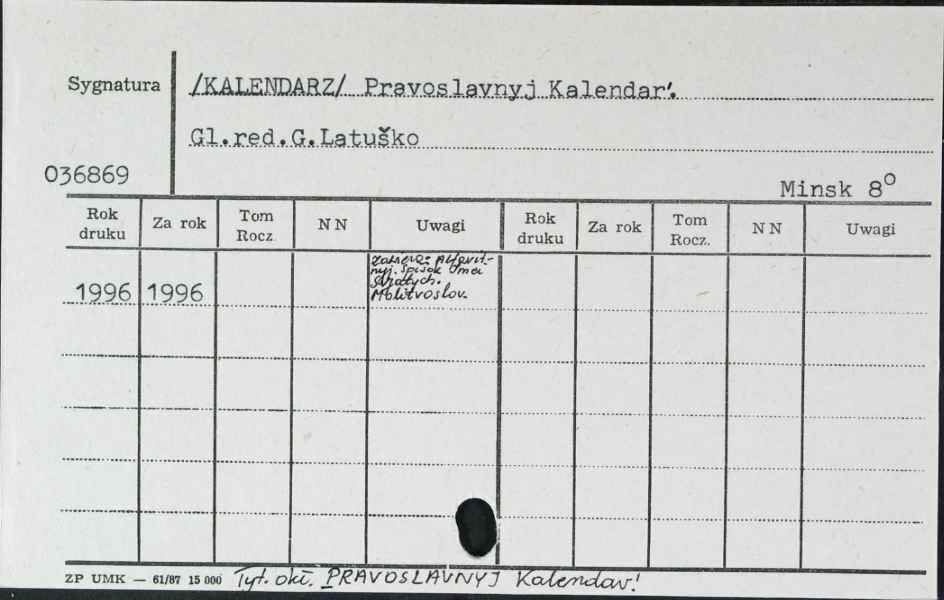 Sygnatura
/KALENDARZ/ Pravoslavnyj Kalendar'.
Gl.red.G.Latuško
036869
Minsk 8°
Rok druku Za rok Tom Rocz. NN Uwagi Rok druku Za rok Tom Rocz. NN Uwagi
1996 1996
zawiera: Alfavit-
nyj. spisok imen
svjatych.
Molitvoslov.
ZP UMK — 61/87 15 000 Tyt. okł. PRAVOSLAVNYJ Kalendar'